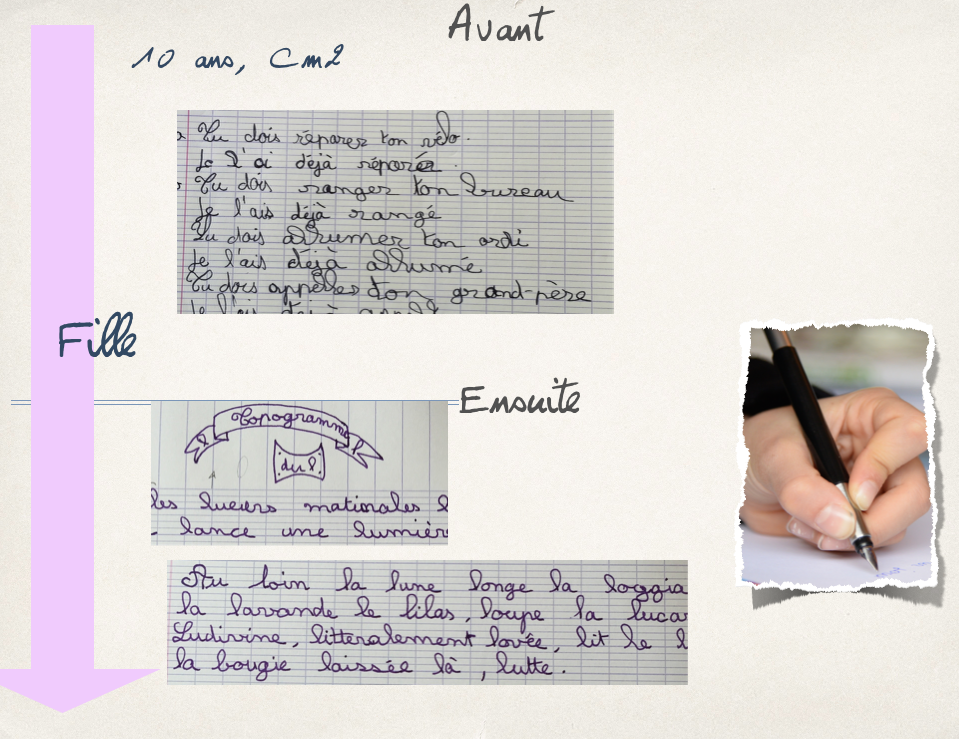 Avant
10 ans, Cm2
Tu dois réparer ton vélo.
Je l'ai déjà réparée.
Tu dois ranger ton bureau
Je l'ais déjà rangé
Tu dois allumer ton ordi
Je l'ais déjà allumé
Tu dois appelles ton grand-père
Fille
Ensuite
l Topogramme l
du l
les lueurs matinales l
lance une lumièr
Au loin la lune longe la loggia
la lavande le lilas, loupe la luca
Ludivine, litteralement lovée, lit le l
la bougie laissée là, lutte.